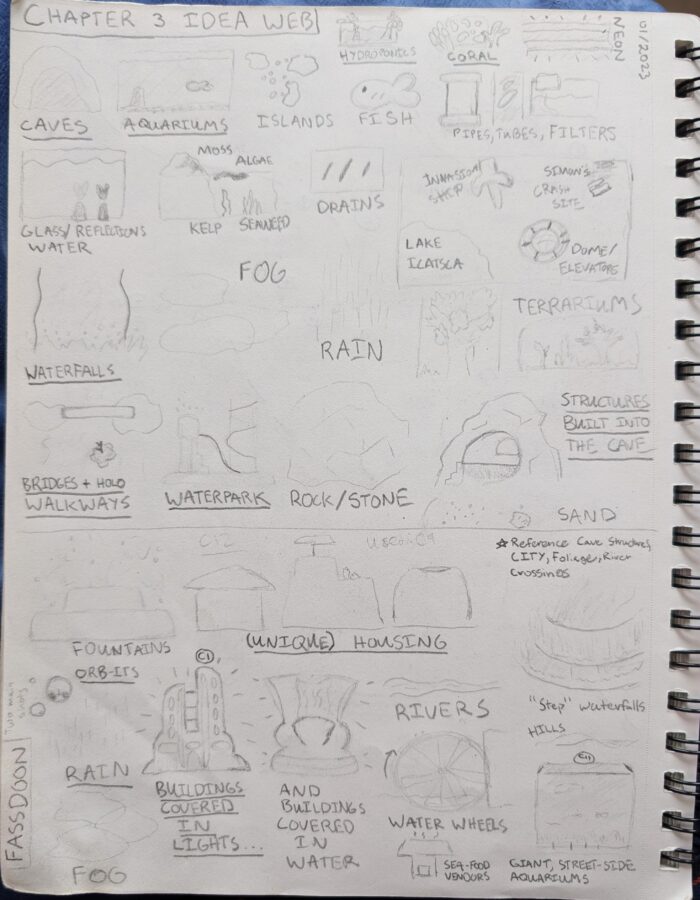 CHAPTER 3 IDEA WEB
HYDROPONICS
CORAL
NEON
01/2023
CAVES
AQUARIUMS
ISLANDS
FISH
PIPES, TUBES, FILTERS
MOSS
ALGAE
GLASS/REFLECTIONS
WATER
KELP
SEAWEED
DRAINS
INVASION
SHIP
SIMON'S
CRASH
SITE
LAKE
DOME/
ELEVATORS
FOG
RAIN
TERRARIUMS
WATERFALLS
STRUCTURES
BUILT INTO
THE CAVE
BRIDGES + HOLO
WALKWAYS
WATERPARK
ROCK/STONE
SAND
☆ Reference Cave Structures,
CITY, Foliage, River
Crossings
FOUNTAINS
(UNIQUE) HOUSING
ORB-ITS
"Step" waterfalls
RIVERS
HILLS
RAIN
BUILDINGS
COVERED
IN
LIGHTS...
AND
BUILDINGS
COVERED
IN
WATER
WATER WHEELS
SEA-FOOD
VENDORS
GIANT, STREET-SIDE
AQUARIUMS
FASSDOON
FOG